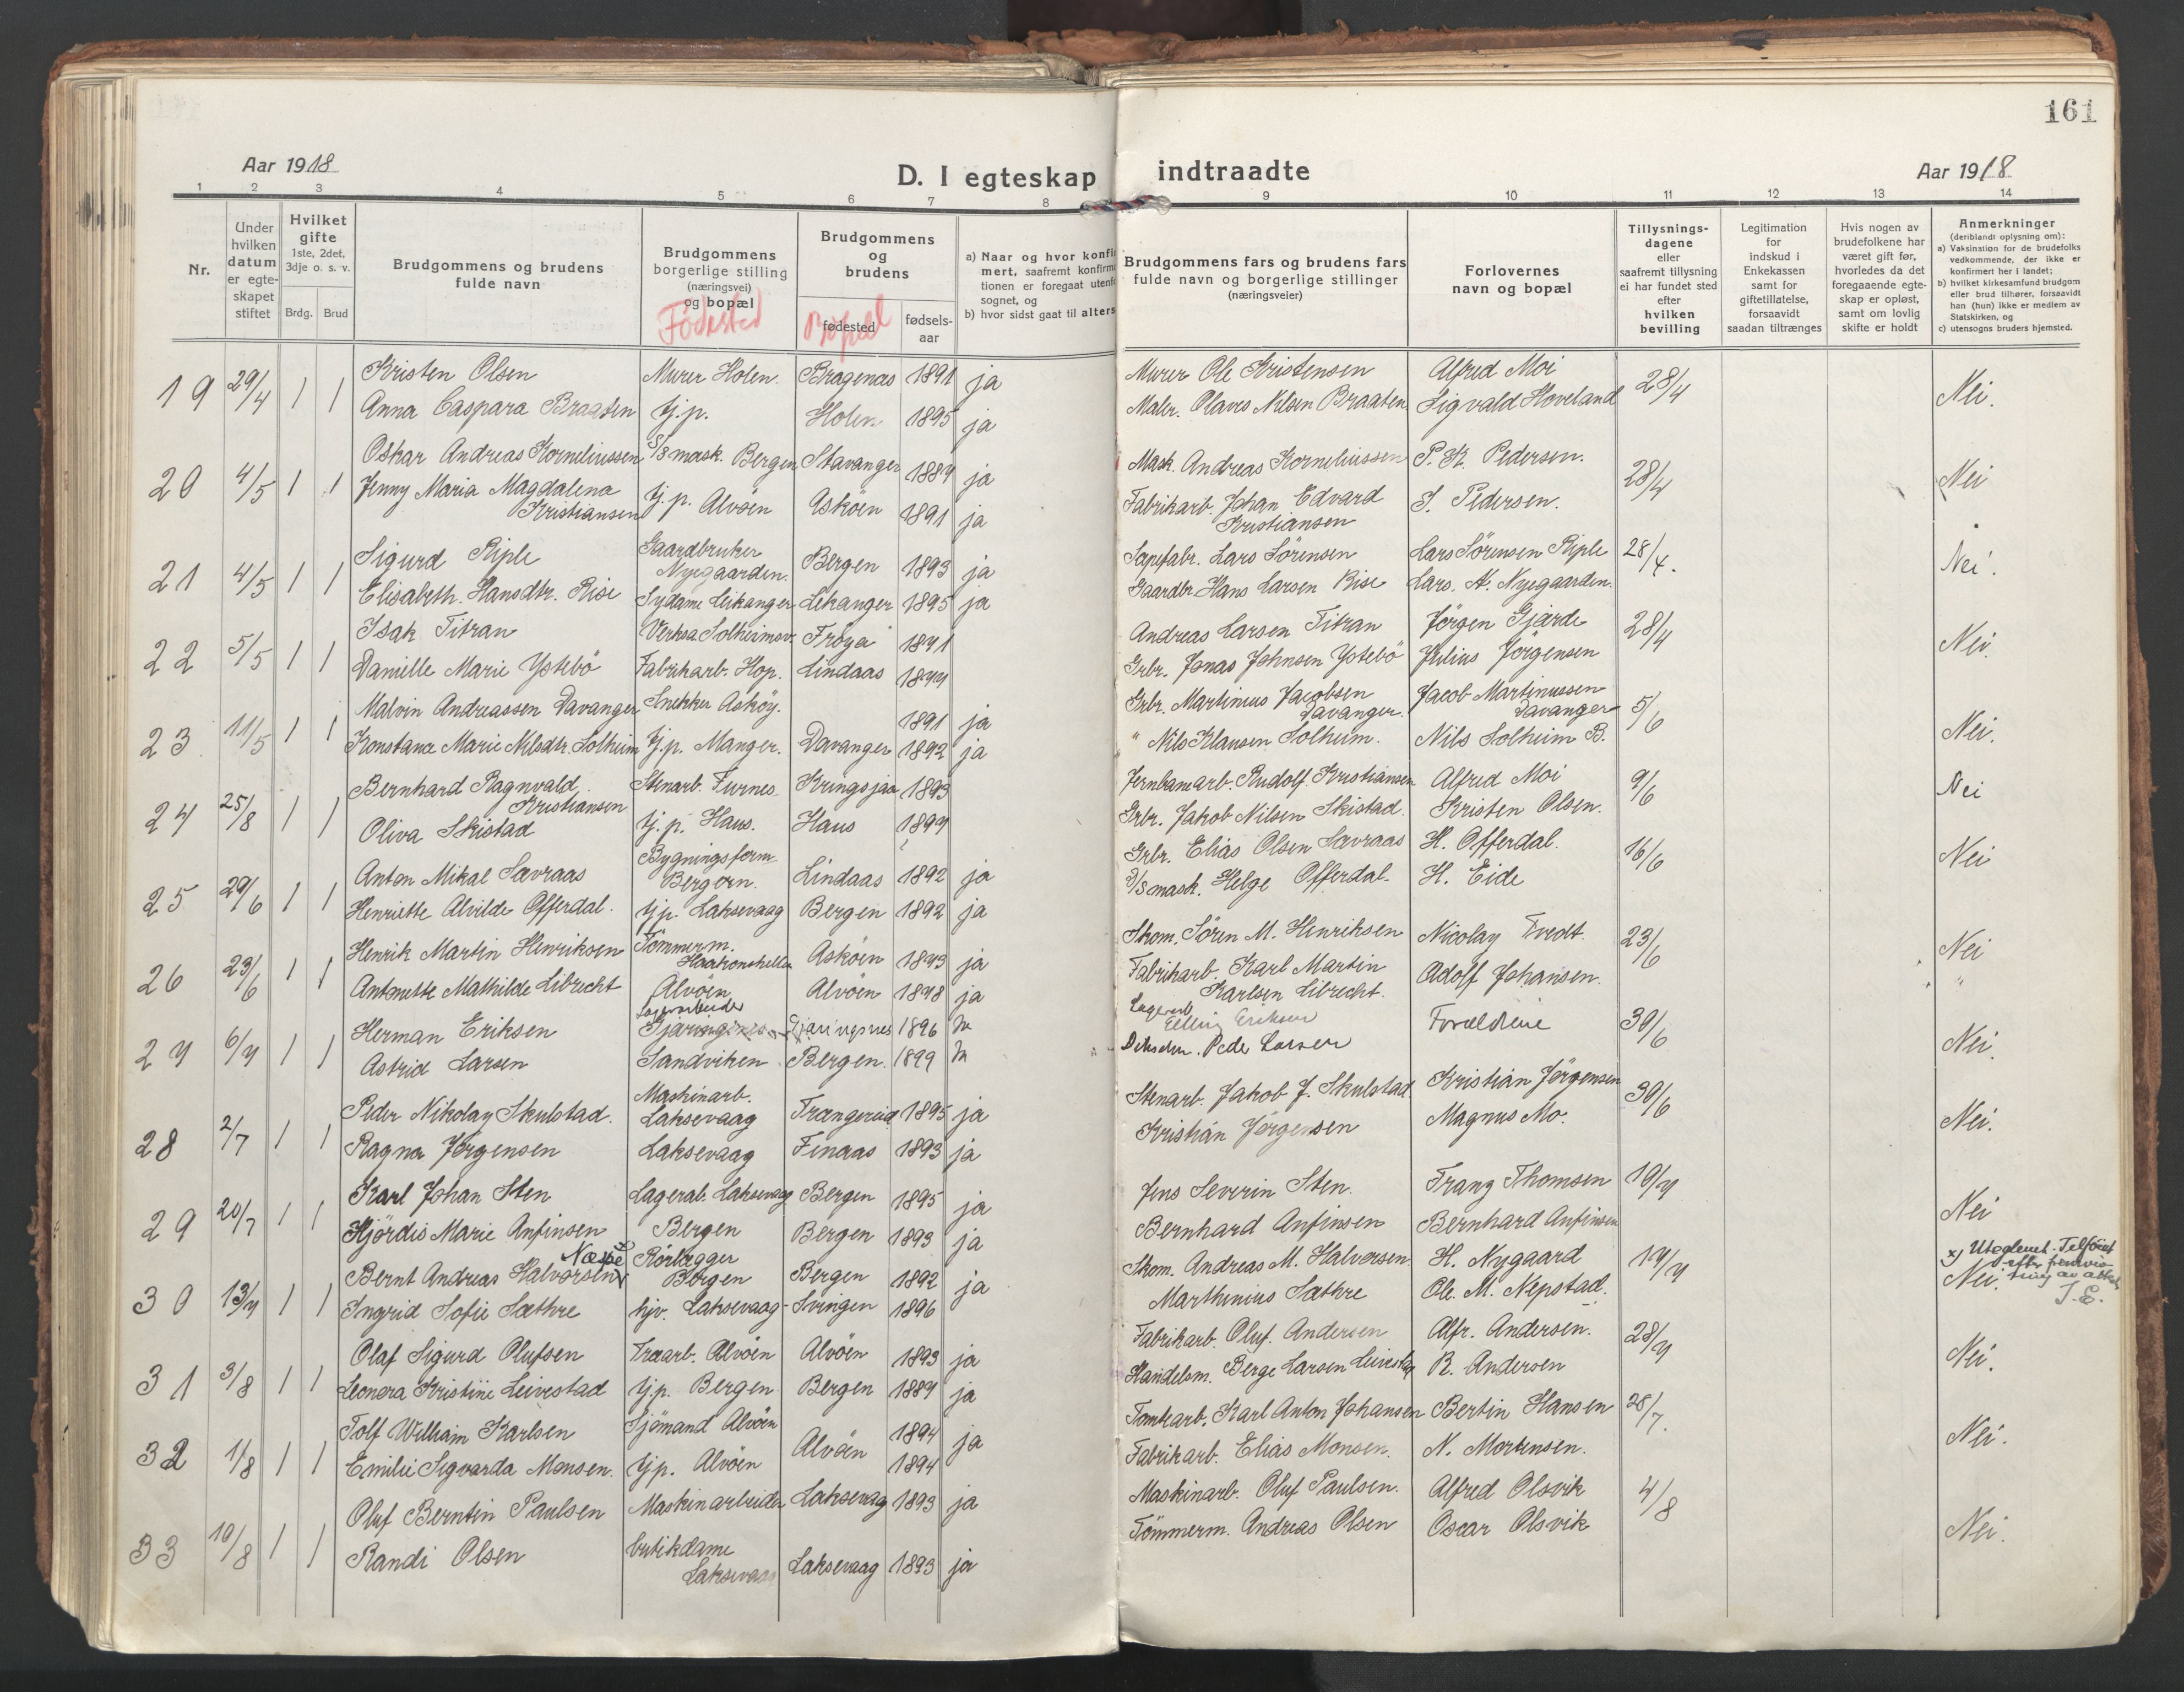 161
Aar 1918
D. I egteskap indtraadte
Aar 1918
1 2 3 4 5 6 7 8 9 10 11 12 13 14
Nr.
Under hvilken datum er egteskapet stiftet
Hvilket gifte 1ste, 2det, 3dje o. s. v.
Brdg. Brud
Brudgommens og brudens fulde navn
Brudgommens borgerlige stilling (næringsvei) og bopæl
Fødested
Brudgommens og brudens
fødested
Bopæl
fødsels-aar
a) Naar og hvor konfir
mert, saafremt konfirma
tionen er foregaat utenfo
sognet, og
b) hvor sidst gaat til alters
Brudgommens fars og brudens fars fulde navn og borgerlige stillinger (næringsveier)
Forlovernes navn og bopæl
Tillysnings-dagene eller saafremt tillysning ei har fundet sted efter hvilken bevilling
Legitimation for indskud i Enkekassen samt for giftetillatelse, forsaavidt saadan tiltrænges
Hvis nogen av brudefolkene har været gift før, hvorledes da det foregaaende egteskap er opløst, samt om lovlig skifte er holdt
Anmerkninger
(deriblandt oplysning om):
a) Vaksination for de brudefolks vedkommende, der ikke er konfirmert her i landet;
b) hvilket kirkesamfund brudgom eller brud tilhører, forsaavidt han (hun) ikke er medlem av Statskirken, og
c) utensogns bruders hjemsted.
19 29/4 1 1 Kristen Olsen Murer Holen. Bragenæs 1891 ja Murer Ole Kristensen Alfred Moi 28/4 Nei.
Anna Caspara Braaten tj.p. Holen 1895 ja Maler. Olaves Nilsen Braaten Sigvald Hoveland
20 4/5 1 1 Oskar Andreas Korneliussen D/S mask. Bergen Stavanger 1887 ja Mask. Andreas Korneliussen P. K. Pedersen. 28/4 Nei
Jenny Maria Magdalena Kristiansen tj.p. Alvøen Askøen 1891 ja Fabrikarb. Johan Edvard Kristiansen S. Pedersen.
21 4/5 1 1 Sigurd Riple Gaardbruker Nygaarden. Bergen 1893 ja Sæpefabr. Lars Sörensen Lars Sörensen Riple 28/4. Nei.
Elisabeth. Hansdtr. Risе Sydame Leikanger Leikanger 1895 ja Gaardbr. Hans Larsen Rise Lars. A. Nyegaarden.
22 5/5 1 1 Isak Titran Verksa Solheimsv. Fröya 1871 Andreas Larsen Titran Jörgen Gjærde 28/4 Nei.
Danielle Marie Ystebö Fabrikarb. Hop. Lindaas 1877 Grbr. Jonas Johnsen Ystebö Julius Jörgensen
23 11/5 1 1 Malvin Andreassen Davanger Snekker Asköy. 1891 ja Grbr. Martinus Jacobsen Davanger. Jacob Martinussen Davanger 5/6 Nei.
Konstance Marie Nilsdtr. Solheim tj.p. Manger. Davanger 1892 ja " Nils Klausen Solheim. Nils Solheim B.
24 25/8 1 1 Bernhard Ragnvald Kristiansen Stenarb. Furnes Kringsjaa 1893 Jernbanarb. Rudolf Kristiansen Alfred Moi 9/6 Nei
Oliva Skistad tj.p. Haus. Haus 1897 Grbr. Jakob Nilsen Skistad. Kristen Olsen.
25 29/6 1 1 Anton Mikal Sævraas Bygningsform. Bergen. Lindaas 1892 ja Grbr. Elias Olsen Sævraas H. Offerdal. 16/6 Nei
Henriette Alvilde Offerdal. tjp. Laksevaag Bergen 1892 ja D/S mask. Helge Offerdal. H. Eide
26 23/6 1 1 Henrik Martin Henriksen Tömmerm. Haakonshellen Asköen 1873 ja Skom. Sören M. Henriksen Nicolay Tvedt. 23/6 Nei
Antonette Mathilde Librecht Alvöen Alvöen 1878 ja Fabrikarb. Karl Martin Karlsen Librecht. Adolf Johansen. "
27 6/7 1 1 Herman Eriksen Lagerarbeider Gjøringsnes 1896 Lagerarb. Elling Eriksen Forældrene 30/6 Nei.
Astrid Larsen Sandviken Bergen. 1899 Peder Larsen
28 2/7 1 1 Peder Nikolay Skulstad. Maskinarb. Laksevaag Trængereid 1895 ja Stenarb. Jakob J. Skulstad. Kristian Jörgensen 30/6 Nei.
Ragna Jörgensen Laksevaag Finaas 1893 ja Kristian Jörgensen Magnus Mo.
29 20/7 1 1 Karl Johan Sten Lagerab. Laksevaag Bergen 1895 ja Jens Severin Sten. Franz Thomsen 10/7 Nei
Hjördis Marie Anfinsen Bergen Bergen 1893 ja Bernhard Anfinsen Bernhard Anfinsen
30 13/7 1 1 Bernt Andreas Halvorsen Næpe x) Rörlægger Bergen Bergen 1892 ja Skom. Andreas M. Halvorsen H. Nygaard 14/7 Nei.
x) Uteglemt. Tilföiet efter fremvisning av attest S.E.
Ingrid Sofie Sæthre hjv. Laksevaag Svingen 1896 Marthinius Sæthre Ole. M. Nepstad.
31 3/8 1 1 Olaf Sigurd Olufsen Træarb. Alvöen Alvöen 1893 ja Fabrikarb. Oluf. Andersen Alfr. Andersen. 28/7 Nei.
Leonora Kristine Leivestad tjp. Bergen Bergen 1887 ja Handelsm. Berge Larsen Leivestad R. Andersen
32 1/8 1 1 Tolf William Karlsen Sjömand Alvöen Alvöen 1894 ja Tomtearb. Karl Anton Johansen Bertin Hansen 28/7. Nei.
Emilie Sigvarda Monsen. tjp. Alvöen 1894 Fabrikarb. Elias Monsen. N. Mortensen.
33 10/8 1 1 Oluf Berntin Paulsen Maskinarbeider Laksevag 1893 ja Maskinarb. Oluf Paulsen. Alfred Olsvik 4/8 Nei.
Randi Olsen butikdame Laksevaag Laksevaag 1893 ja Tömmerm. Andreas Olsen Oscar Olsvik